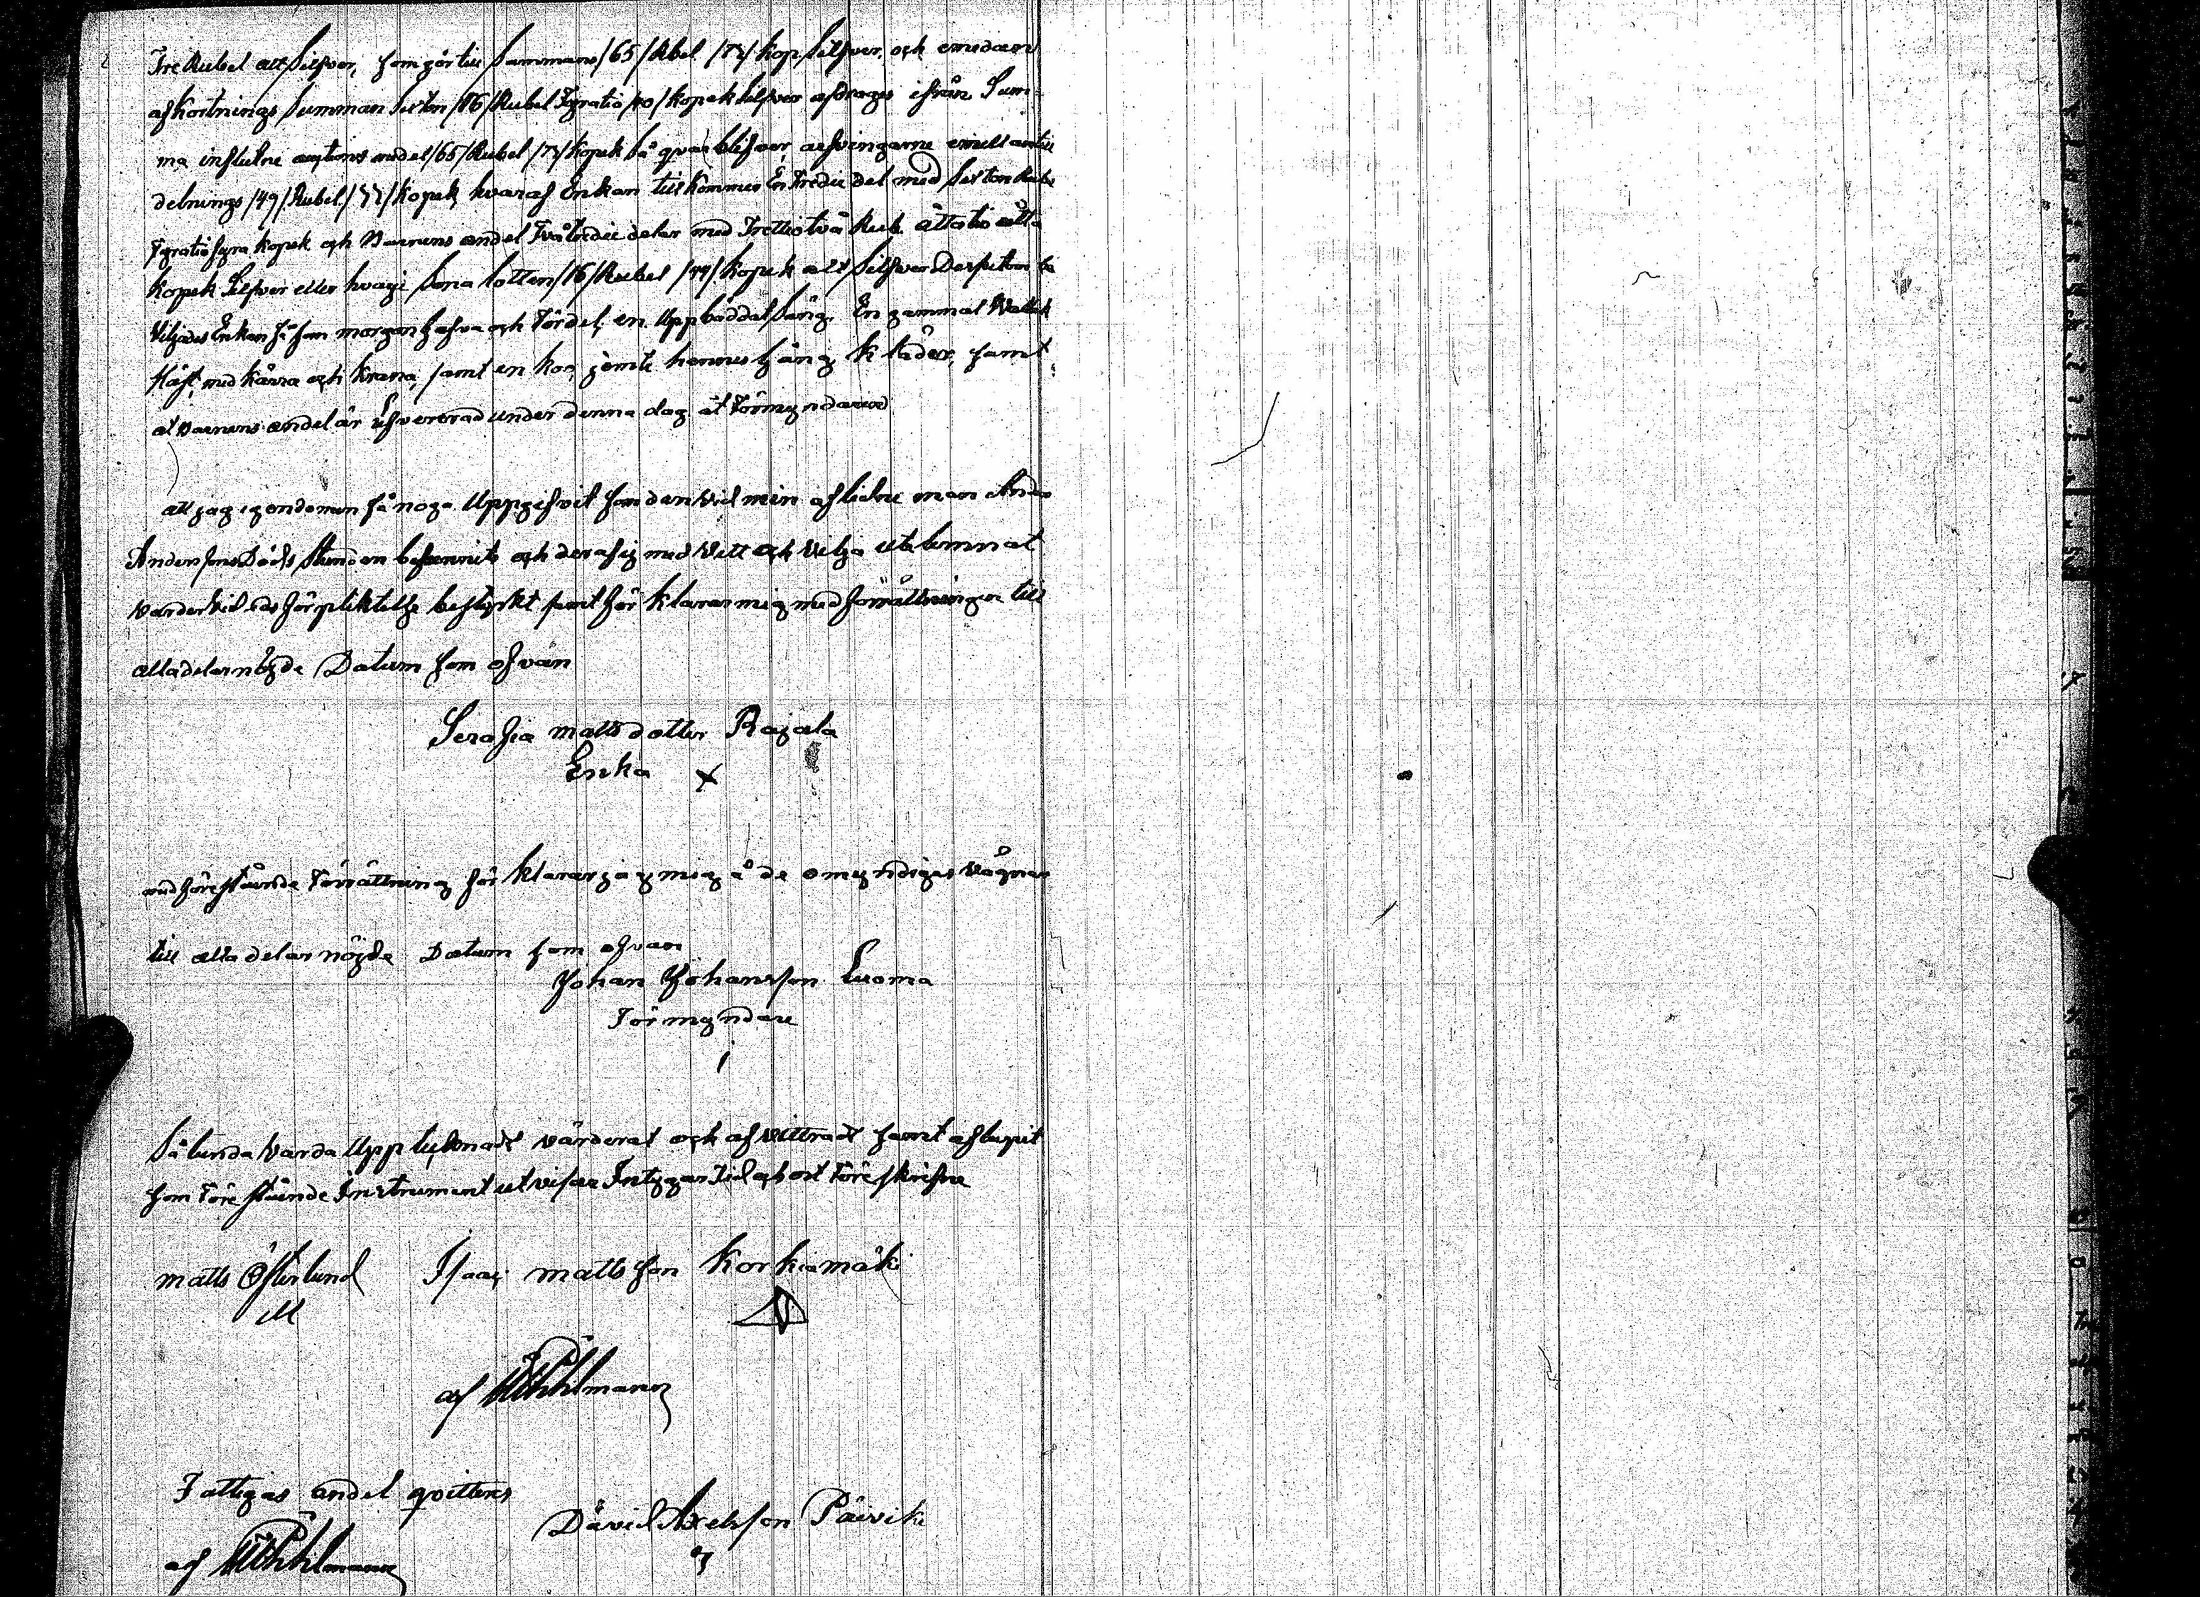 Tre Rubel allt Silfver, som gör till Sammans /65/ Rbl /72/ Kop. Silfver, och emedan
afkortnings Summan Sexton /16/ Rubel Fyratio /40/ Kopek Silfver afdrages ifrån Sum-
ma influtne auctions medel /65/ Rubel /72/ Kopek Så qvarblifver arfvingarne emellan till
delnings /49/ Rubel / / Kopek hvaraf Enkan tillkommer En Tredie del med Sexton Rubel
Fyratiofyra kopek och Barnens andel Två tredie delar med Trettiotvå Rub. åttatio åtta
Kopek Silfver eller hvarje Sona lotten /16/ Rubel /44/ Kopek allt Silfver Dessutom be
viljades Enkan få som morgongåfva och Fördel, en Uppbäddad Säng. En gammal Wallak
Häst, med Kärra och Krana, samt en ko, jemte hennes gång kläder, samt
at Barnens andel är Öfvererad under denna dag åt Förmyndaren
att jag egendomen så noga Uppgifvit som den vid min aflidne man Anders
Andersons Döds Stunden befunnits och deraf ej med Vett och Vilja utelemnat
varder vid eds förpliktelse bestyrkt samt förklarar mig med förrättningen till
alla delar nöjde Datum som ofvan
Serafia mattsdotter Rajala
Enka x
med förestående Förrättning förklarar jag mig å de omyndigas vägnar
till alla delar nöjde Datum som ofvan
Johan Johansson Luoma
Förmyndare
Sålunda varda Upptecknadt värderat och afvittradt samt aflupit
som Förestående Instrument utvisar Intygar Tid och ort Föreskrifne
matts Österlund Isaac mattsson Korkiamäki
M
af
Fattigas andel qvitteras
David Axelsson Päivike
af